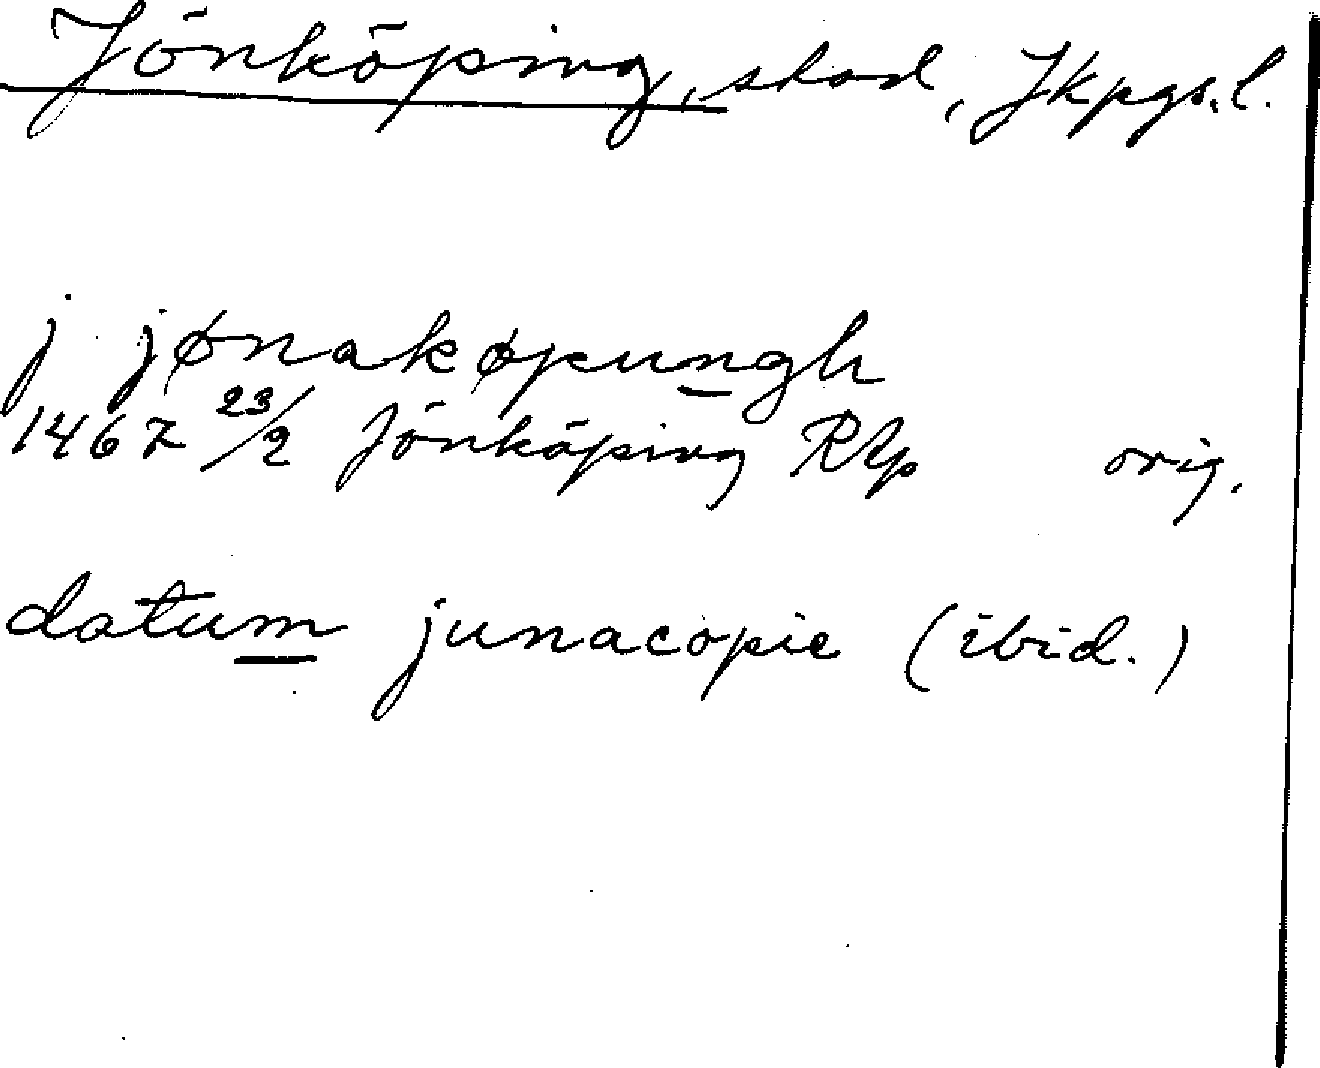 Jönköping, stad, Jkpgs. l.
j jønakøpungh
1467 23/2 Jönköping RAp orig.
datum junacopie (ibid.)